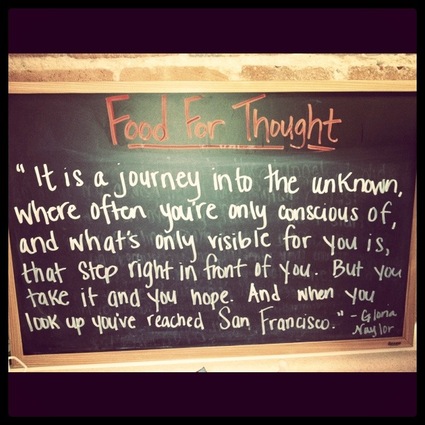 Food For Thought
"It is a journey into the unknown,
where often you're only conscious of,
and what's only visible for you is,
that step right in front of you. But you
take it and you hope. And when you
look up you've reached San Francisco." - Gloria
Naylor